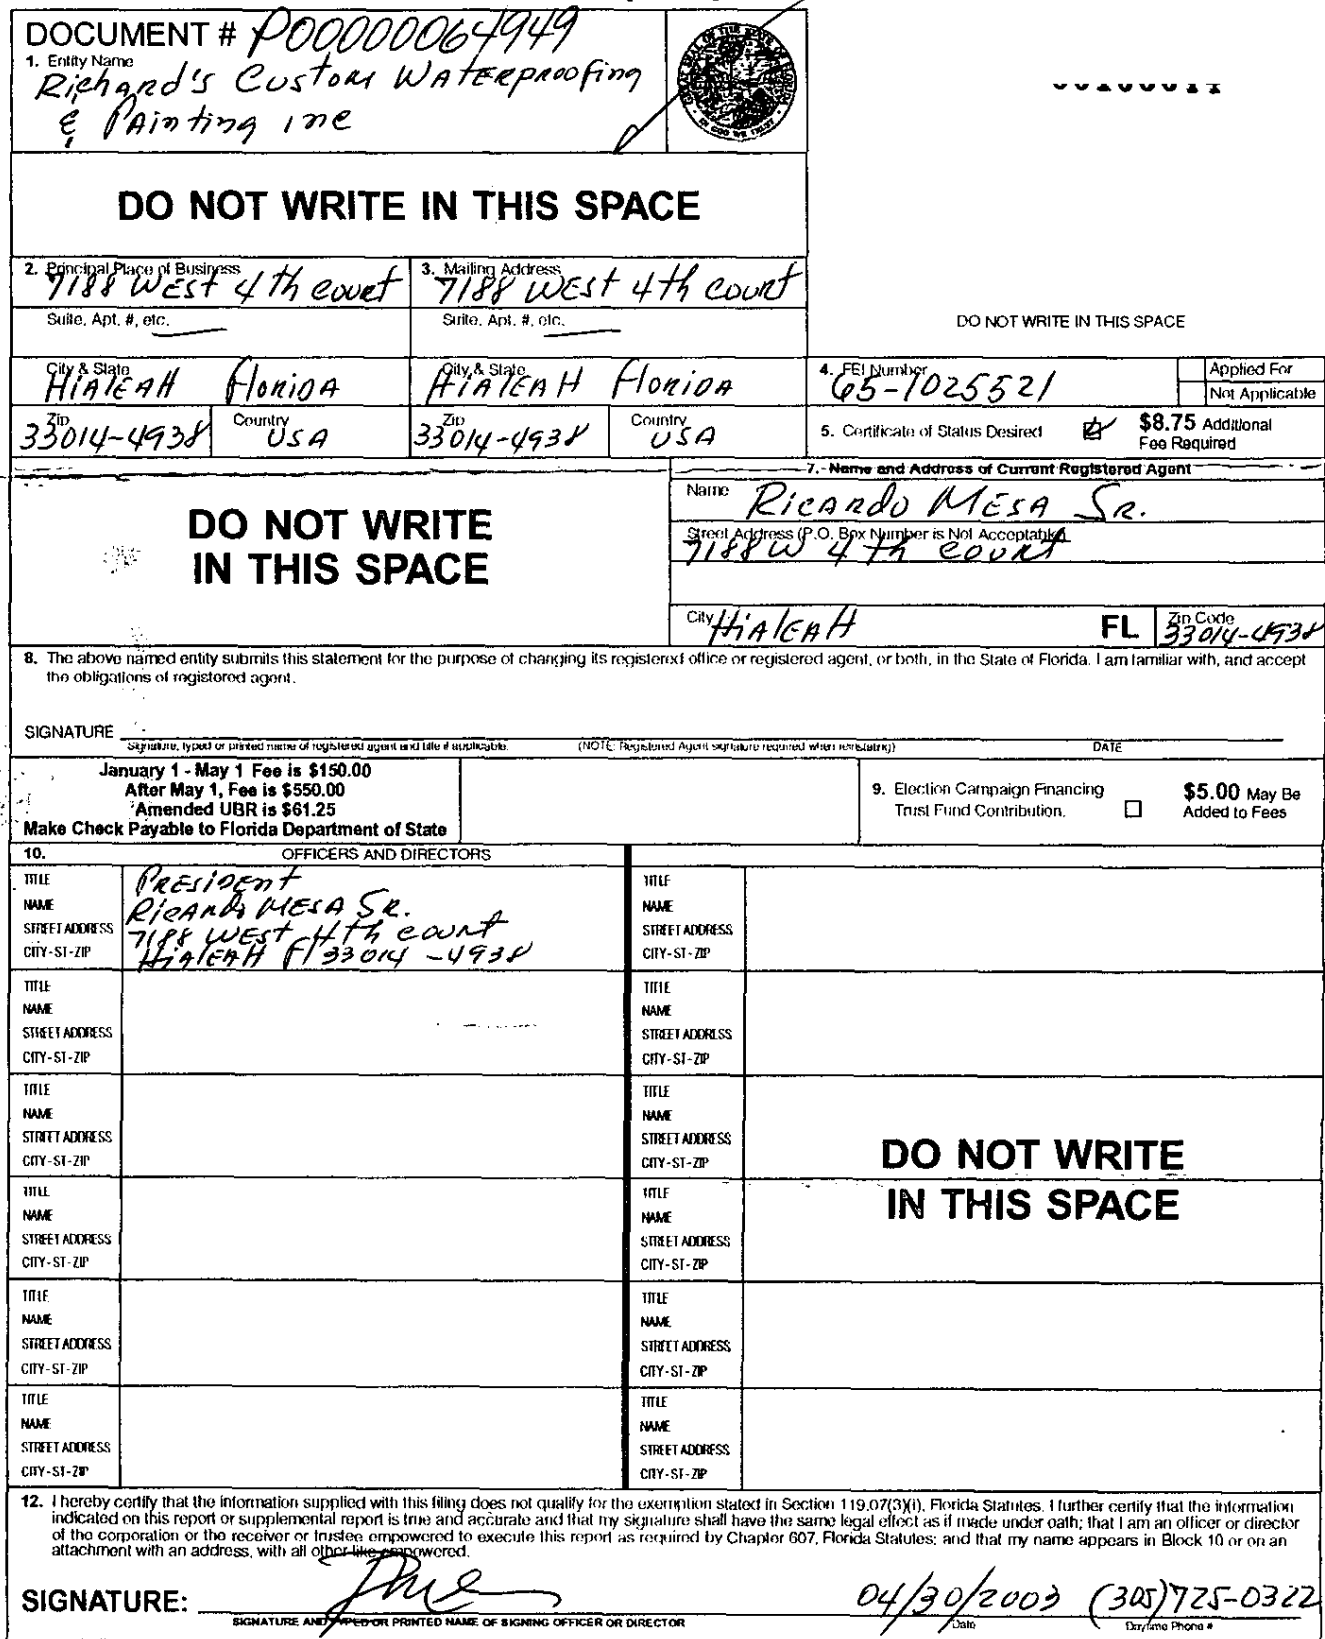 DOCUMENT # P00000064949
1. Entity Name
Richard's Custom Waterproofing
& Painting inc
DO NOT WRITE IN THIS SPACE
2. Principal Place of Business
7188 West 4th court
3. Mailing Address
7188 West 4th court
Suite, Apt. #, etc.
Suite, Apt. #, etc.
DO NOT WRITE IN THIS SPACE
City & State
HiALEAH Florida
City & State
HiALEAH Florida
4. FEI Number
65-1025521
Applied For
Not Applicable
Zip
33014-4938
Country
USA
Zip
33014-4938
Country
USA
5. Certificate of Status Desired
$8.75 Additional
Fee Required
DO NOT WRITE
IN THIS SPACE
7. Name and Address of Current Registered Agent
Name Ricardo Mesa Sr.
Street Address (P.O. Box Number is Not Acceptable)
7188 W 4th court
City HiALEAH
FL
Zip Code
33014-4938
8. The above named entity submits this statement for the purpose of changing its registered office or registered agent, or both, in the State of Florida. I am familiar with, and accept
the obligations of registered agent.
SIGNATURE
Signature, typed or printed name of registered agent and title if applicable. (NOTE: Registered Agent signature required when reinstating) DATE
January 1 - May 1 Fee is $150.00
After May 1, Fee is $550.00
Amended UBR is $61.25
Make Check Payable to Florida Department of State
9. Election Campaign Financing
Trust Fund Contribution.
$5.00 May Be
Added to Fees
10. OFFICERS AND DIRECTORS
TITLE President
NAME Ricardo Mesa Sr.
STREET ADDRESS 7188 West 4th court
CITY-ST-ZIP HiALEAH Fl 33014-4938
TITLE
NAME
STREET ADDRESS
CITY-ST-ZIP
TITLE
NAME
STREET ADDRESS
CITY-ST-ZIP
TITLE
NAME
STREET ADDRESS
CITY-ST-ZIP
TITLE
NAME
STREET ADDRESS
CITY-ST-ZIP
TITLE
NAME
STREET ADDRESS
CITY-ST-ZIP
TITLE
NAME
STREET ADDRESS
CITY-ST-ZIP
TITLE
NAME
STREET ADDRESS
CITY-ST-ZIP
TITLE
NAME
STREET ADDRESS
CITY-ST-ZIP
TITLE
NAME
STREET ADDRESS
CITY-ST-ZIP
TITLE
NAME
STREET ADDRESS
CITY-ST-ZIP
TITLE
NAME
STREET ADDRESS
CITY-ST-ZIP
DO NOT WRITE
IN THIS SPACE
12. I hereby certify that the information supplied with this filing does not qualify for the exemption stated in Section 119.07(3)(i), Florida Statutes. I further certify that the information
indicated on this report or supplemental report is true and accurate and that my signature shall have the same legal effect as if made under oath; that I am an officer or director
of the corporation or the receiver or trustee empowered to execute this report as required by Chapter 607, Florida Statutes; and that my name appears in Block 10 or on an
attachment with an address, with all other like empowered.
SIGNATURE: 04/30/2003 (305)725-0322
SIGNATURE AND TYPED OR PRINTED NAME OF SIGNING OFFICER OR DIRECTOR Date Daytime Phone #